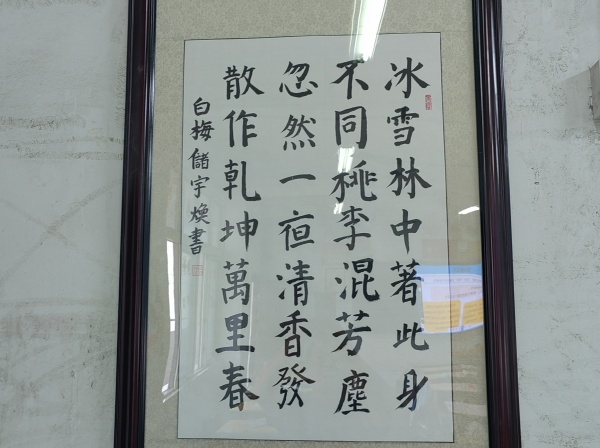 冰雪林中著此身
不同桃李混芳塵
忽然一夜清香發
散作乾坤萬里春
白梅儲宇煥書